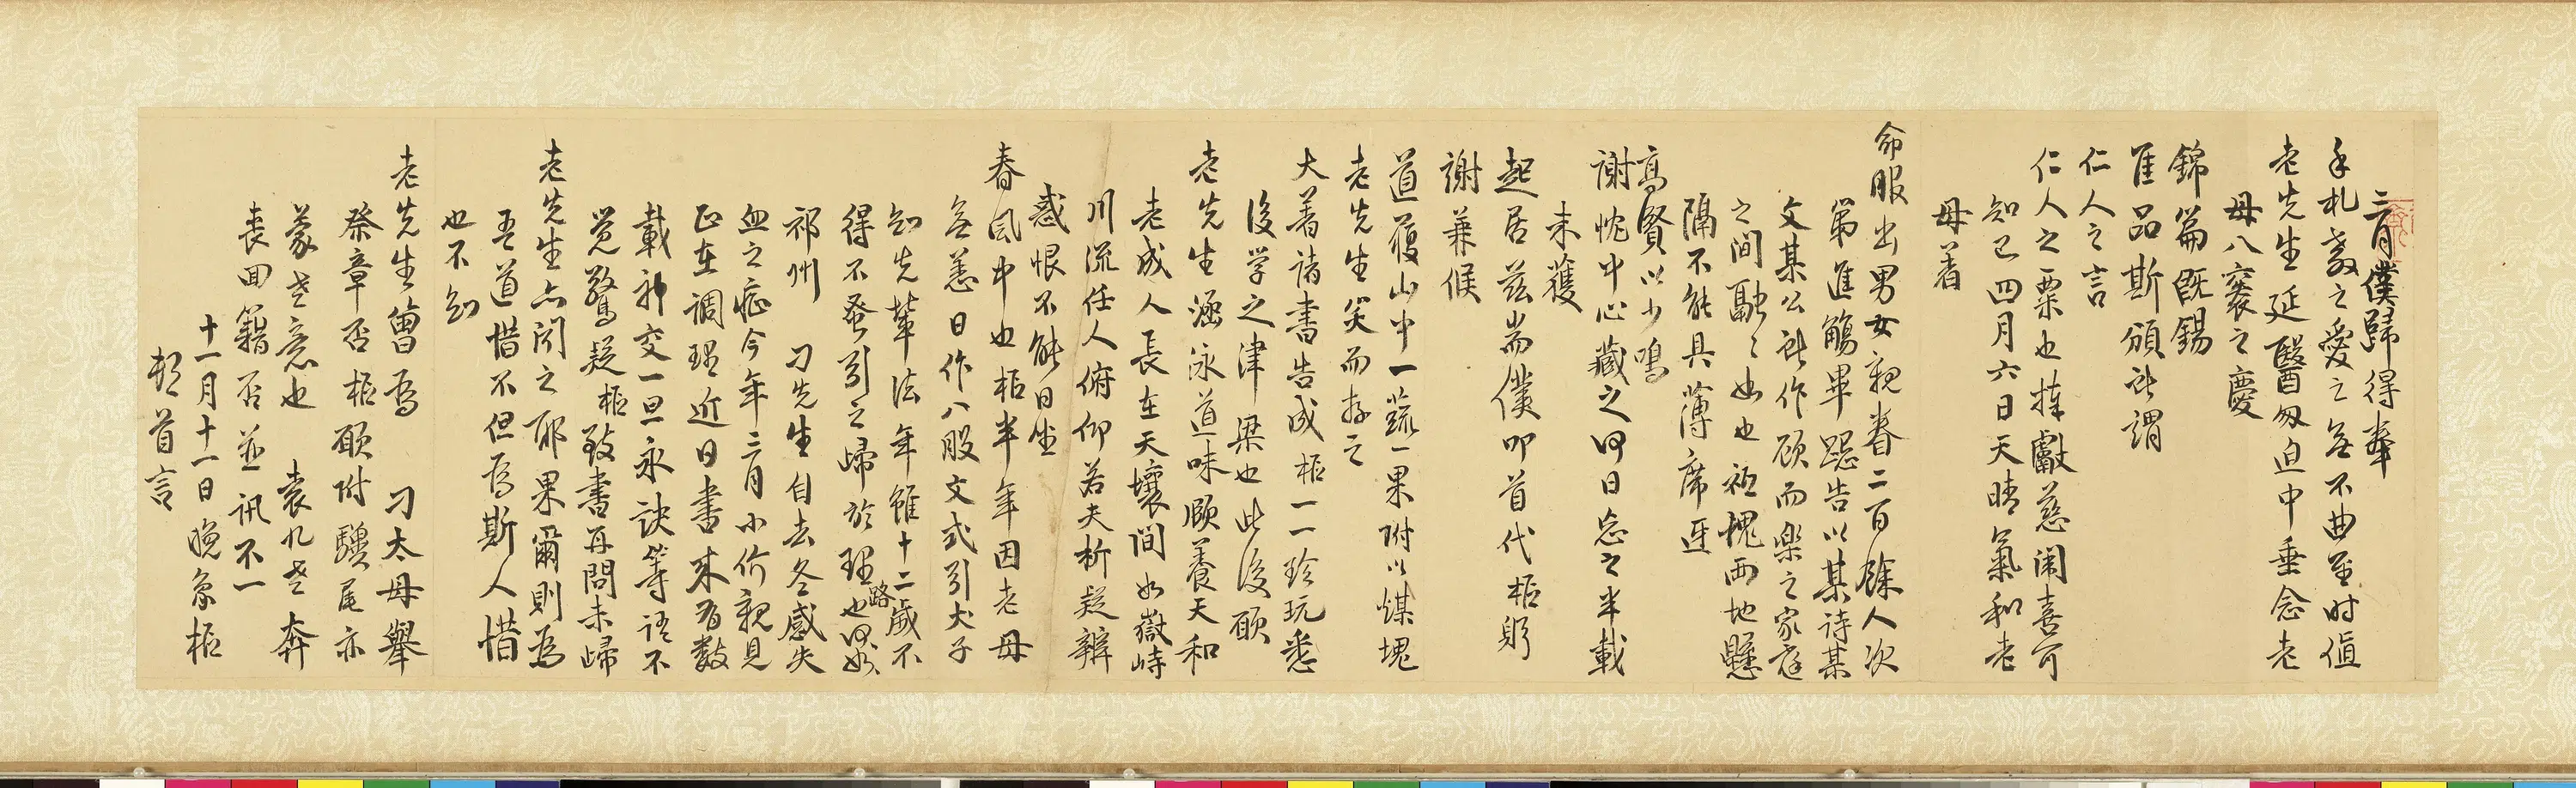 三月僕歸得奉
手札教之愛之無不曲至时值
老先生延醫匆迫中垂念老
母八袠之慶
錦篇既錫
隹品斯頒託謂
仁人之言
仁人之粟也捧獻慈闈喜可
知已四月六日天晴氣和老
母着
命服出男女親眷二百餘人次
第進觴畢跽告以某詩某
文某公所作顧而樂之家庭
之間融〻如也祗愧西地懸
隔不能具薄席迓
高賢以少鳴
謝忱中心藏之何日忘之半載
未獲
起居茲耑僕叩首代柩躬
謝兼候
道履山中一蔬一果附以煤塊
老先生笑而存之
大著諸書告成柩一一珍玩悉
後學之津梁也此後願
老先生涵泳道味頤養天和
老成人長在天壤間如嶽峙
川流任人俯仰若夫析疑辨
惑恨不能日坐
春風中也柩半年因老母
無恙日作八股文式引犬子
知先輩法年雖十二歲不
得不發引之歸於理路也
祁州 刁先生自去冬感失
血之症今年三月小价親見
正在調理近日書来有數
載神交一旦永訣等語不
覚驚疑柩致書再問未歸
老先生亦聞之耶果爾則為
吾道惜不但為斯人惜
也不知
老先生曾為 刁太母舉
祭章否柩願附驥尾亦
蒙老意也 袁九老奔
喪回籍否並訊不一
十一月十一日晚象柩
頓首言